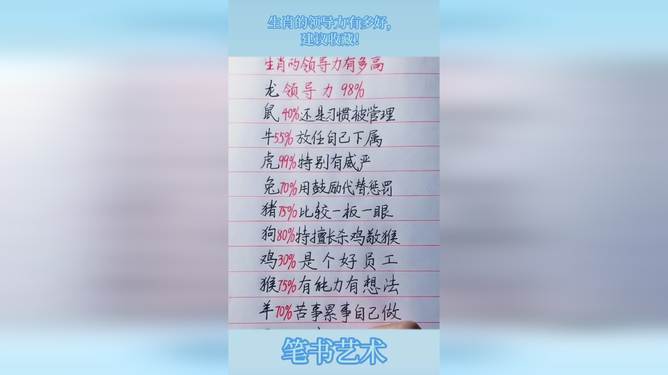 生肖的领导力有多好,
建议收藏!
生肖的领导力有多高
龙领导力98%
鼠40%还是习惯被管理
牛55%放任自己下属
虎99%特别有威严
兔70%用鼓励代替惩罚
猪75%比较一板一眼
狗80%特擅长杀鸡敬猴
鸡30%是个好员工
猴75%有能力有想法
羊70%苦事累事自己做
笔书艺术